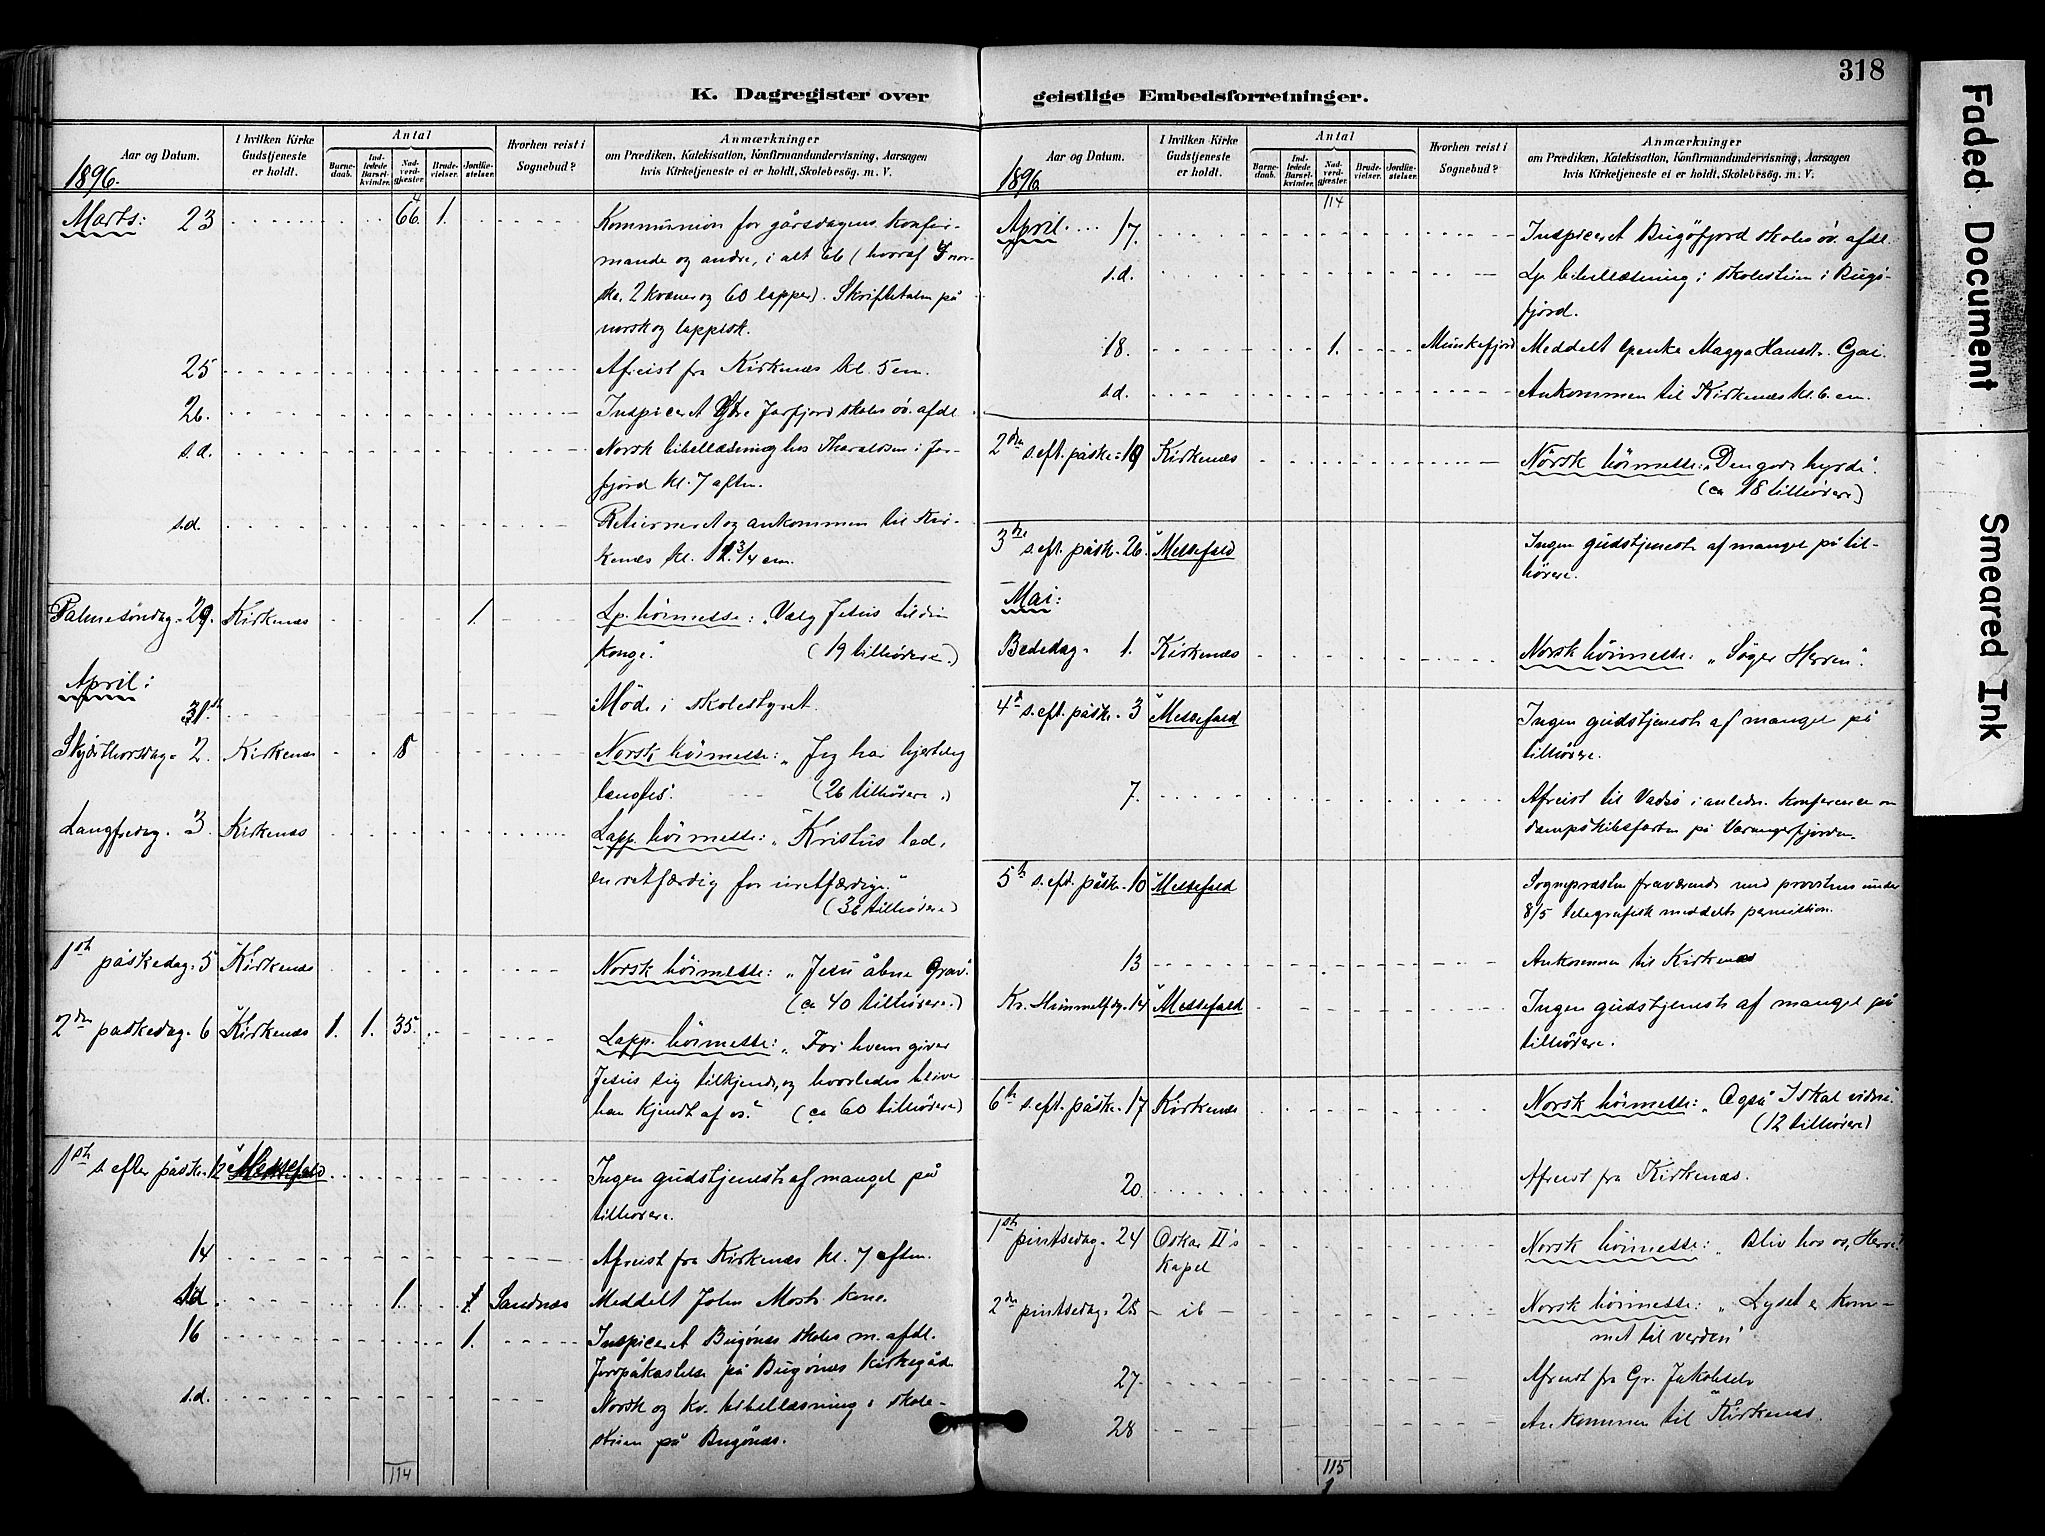 318
K. Dagregister over geistlige Embedsforretninger.
Aar og Datum.
I hvilken Kirke Gudstjeneste er holdt.
Antal
Barnedaab.
Indledede Barselkvinder.
Nadverdgjester.
Brudevielser.
Jordfæstelser.
Hvorhen reist i Sognebud?
Anmærkninger
om Prædiken, Katekisation, Konfirmandundervisning, Aarsagen
hvis Kirketjeneste ei er holdt, Skolebesøg. m. V.
1896.
Marts: 23 66 1. Kommunion for gårsdagens konfir-
mande og andre, i alt 66 (hvoraf 4 nor-
ske, 2 kvæner og 60 lapper). Skriftetalen på
norsk og lappisk.
25 Afreist fra Kirkenæs kl. 5 em.
26. Inspiceret Ytre Jarfjord skoles öv. afdl.
s.d. Norsk bibellæsning hos Tharaldsen i Jar-
fjord kl. 7 aften.
s.d. Returneret og ankommen til Kir-
kenæs kl. 12 3/4 em.
Palmesöndag. 29. Kirkenæs 1. Lp. höimesse: "Vælg Jesus til din
konge." (19 tilhörere.)
April:
31. Möde i skolestyret.
Skjærthorsdag. 2. Kirkenæs 8 Norsk höimesse: "Jeg har hjertelig
længtes". (26 tilhörere.)
Langfredag. 3. Kirkenæs Lapp. höimesse: "Kristus led,
en retfærdig for uretfærdige."
(36 tilhörere)
1ste påskedag. 5 Kirkenæs Norsk höimesse: "Jesu åbne Grav".
(ca 40 tilhörere.)
2den påskedag. 6 Kirkenæs 1. 1. 35. Lapp. höimesse: "For hvem giver
Jesus sig tilkjende, og hvorledes bliver
han kjendt af os." (ca 60 tilhörere)
1ste s. efter påske. 12 Messefald Ingen gudstjeneste af mangel på
tilhörere.
14 Afreist fra Kirkenæs kl. 7 aften.
s.d. 1. Sandnæs Meddelt John kone.
16 1. Inspiceret Bugönæs skoles m. afdl.
Jordpåkastelse på Bugönæs kirkegård
s.d. Norsk og kv. bibellæsning i skole-
stuen på Bugönæs.
114
Aar og Datum.
I hvilken Kirke Gudstjeneste er holdt.
Antal
Barnedaab.
Indledede Barselkvinder.
Nadverdgjester.
Brudevielser.
Jordfæstelser.
Hvorhen reist i Sognebud?
Anmærkninger
om Prædiken, Katekisation, Konfirmandundervisning, Aarsagen
hvis Kirketjeneste ei er holdt, Skolebesøg. m. V.
1896
114
April. 17. Inspiceret Bugöfjord skoles öv. afdl.
s.d. Lp. bibellæsning i skolestuen i Bugö-
fjord.
18. 1. Munkefjord Meddelt enke Magga Hansdr.
s.d. Ankommen til Kirkenæs kl. 6 em.
2den s. eft. påske. 19 Kirkenæs Norsk höimesse: "Den gode hyrde".
(ca 18 tilhörere)
3die s. eft. påske. 26. Messefald Ingen gudstjeneste af mangel på til-
hörere.
Mai:
Bededag. 1. Kirkenæs Norsk höimesse: "Söger Herren".
4de s. eft. påske. 3 Messefald Ingen gudstjeneste af mangel på
tilhörere.
7. Afreist til Vadsö i anledn. konference om
dampskibsfarten på Varangerfjorden.
5te s. eft. påske. 10 Messefald Sognepræsten fraværende med provstens under
8/5 telegrafisk meddelte permission.
13 Ankommen til Kirkenæs
Kr. Himmelfdg. 14 Messefald Ingen gudstjeneste af mangel på
tilhörere.
6te s. eft. påske. 17 Kirkenæs Norsk höimesse: "Også I skal vidne".
(12 tilhörere)
20. Afreist fra Kirkenæs.
1ste pintsedag. 24 Oskar II's Norsk höimesse: "Bliv hos os, Herre!
Kapel
2den pintsedag. 25 - ib - Norsk höimesse: "Lyset er kom-
met til verden"
27. Afreist fra Gr. Jakobselv
28 Ankommen til Kirkenæs.
115
Faded Document
Smeared Ink